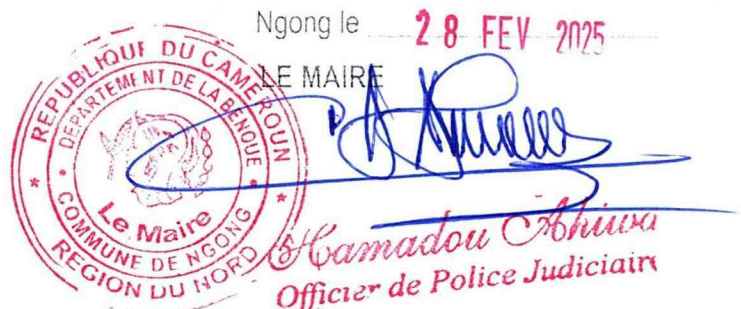 Ngong le 28 FEV 2025
LE MAIRE
REPUBLIQUE DU CAMEROUN
DEPARTEMENT DE LA BENOUE
Le Maire
COMMUNE DE NGONG
REGION DU NORD
Hamadou Ahiwa
Officier de Police Judiciaire